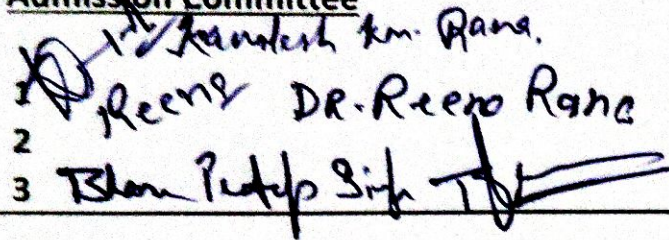 Admission Committee
Kamlesh Km. Rana.
1 Reena DR. Reena Rana
2
3 Bhanu Pratap Singh